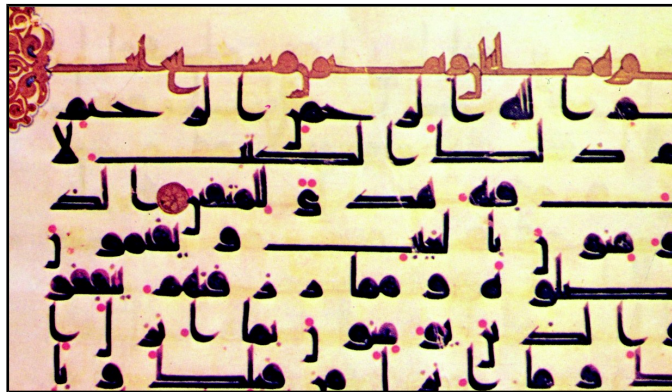 ـم الله الرحمن الرحيم
م ذلك الكتب لا
ـب فيه هدى للمتقين الذ
ومنون بالغيب ويقيمون
ـصلوة ومما رزقنهم ينفقو
والذين يومنون بما انزل ا
ك وما انزل من قبلك وبا